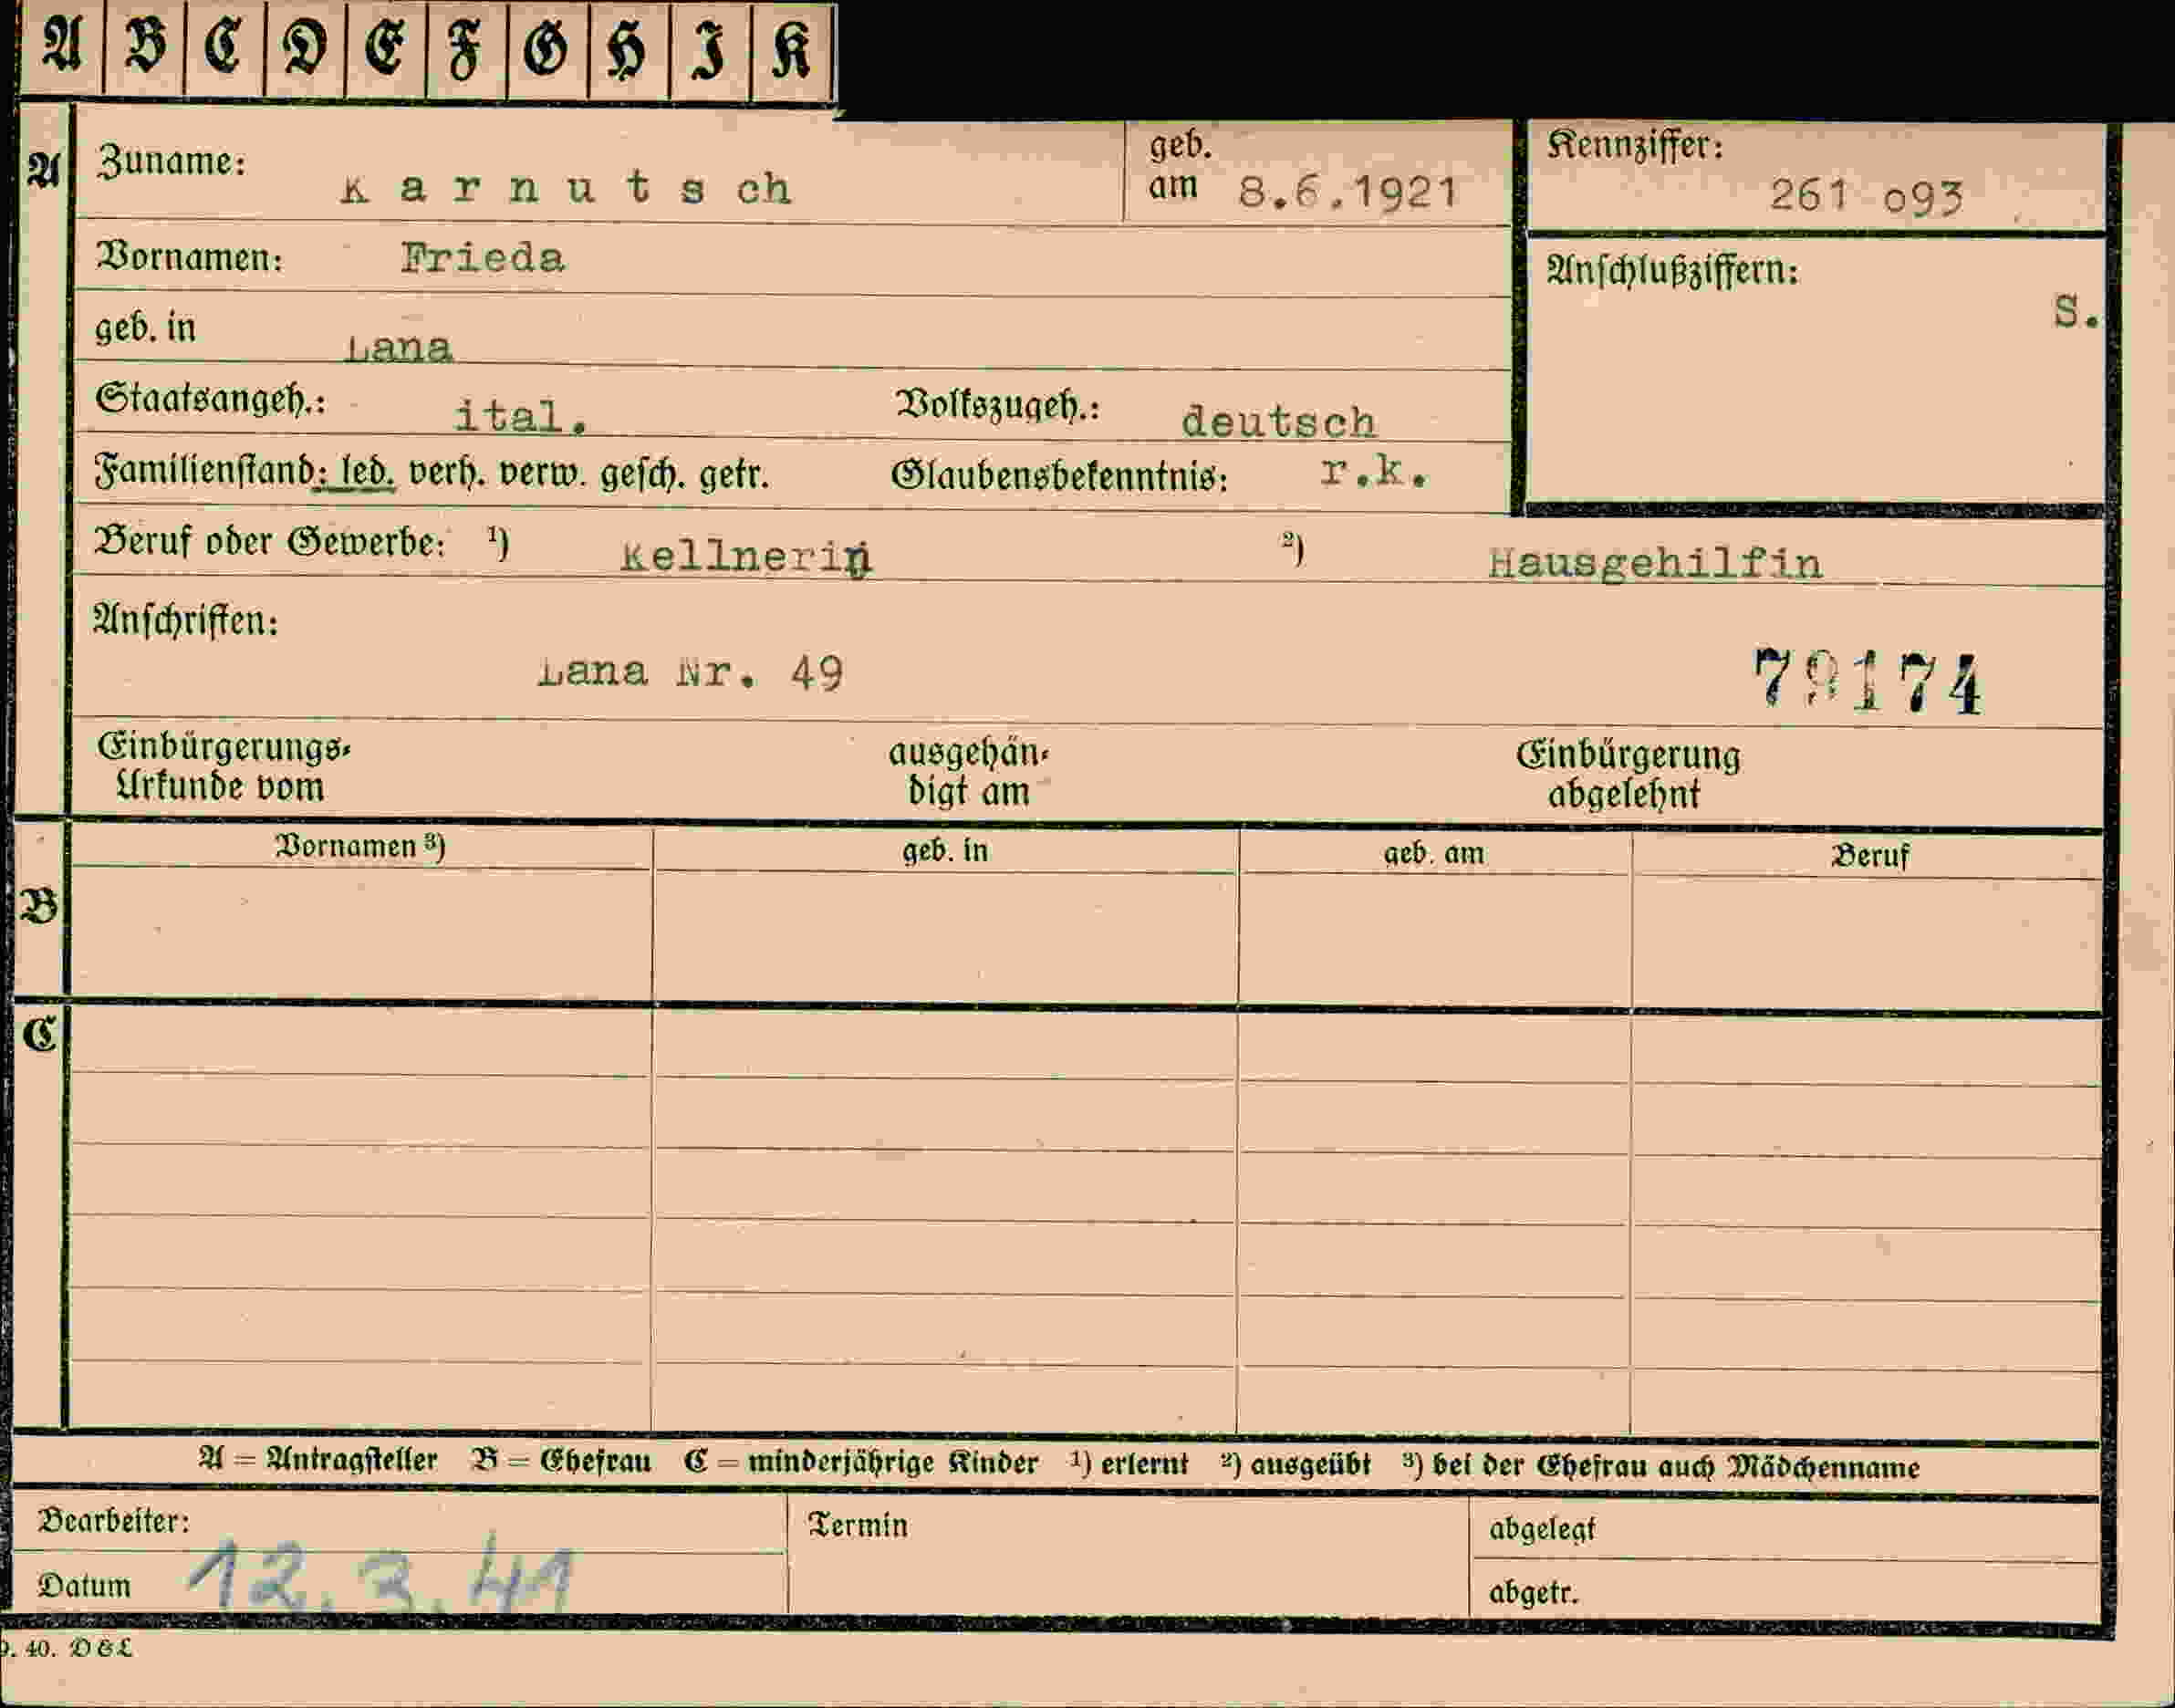 A B C D E F G H I K
A Zuname: Karnutsch geb. am 8.6.1921 Kennziffer: 261 o93
Vornamen: Frieda Anschlußziffern:
S.
geb. in Lana
Staatsangeh.: ital. Volkszugeh.: deutsch
Familienstand: led. verh. verw. gesch. getr. Glaubensbekenntnis: r.k.
Beruf oder Gewerbe: ¹) Kellnerin ²) Hausgehilfin
Anschriften:
Lana Nr. 49 79174
Einbürgerungs- ausgehän- Einbürgerung
Urkunde vom digt am abgelehnt
Vornamen ³) geb. in geb. am Beruf
B
C
A = Antragsteller B = Ehefrau C = minderjährige Kinder ¹) erlernt ²) ausgeübt ³) bei der Ehefrau auch Mädchenname
Bearbeiter: Termin abgelegt
Datum 12.3.41 abgetr.
9. 40. DEL